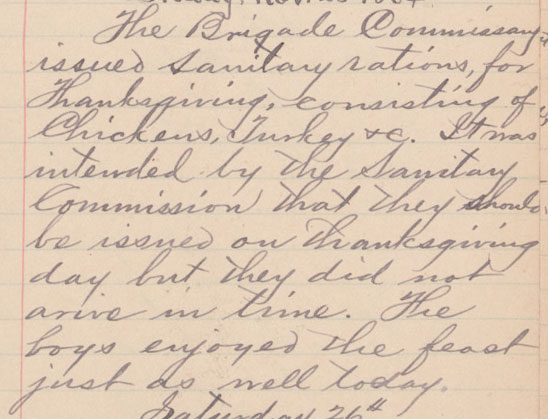 The Brigade Commissary
issued Sanitary rations, for
Thanksgiving, consisting of
Chickens, Turkey &c. It was
intended by the Sanitary
Commission that they should
be issued on Thanksgiving
day but they did not
arive in time. The
boys enjoyed the feast
just as well today.
Saturday 26th